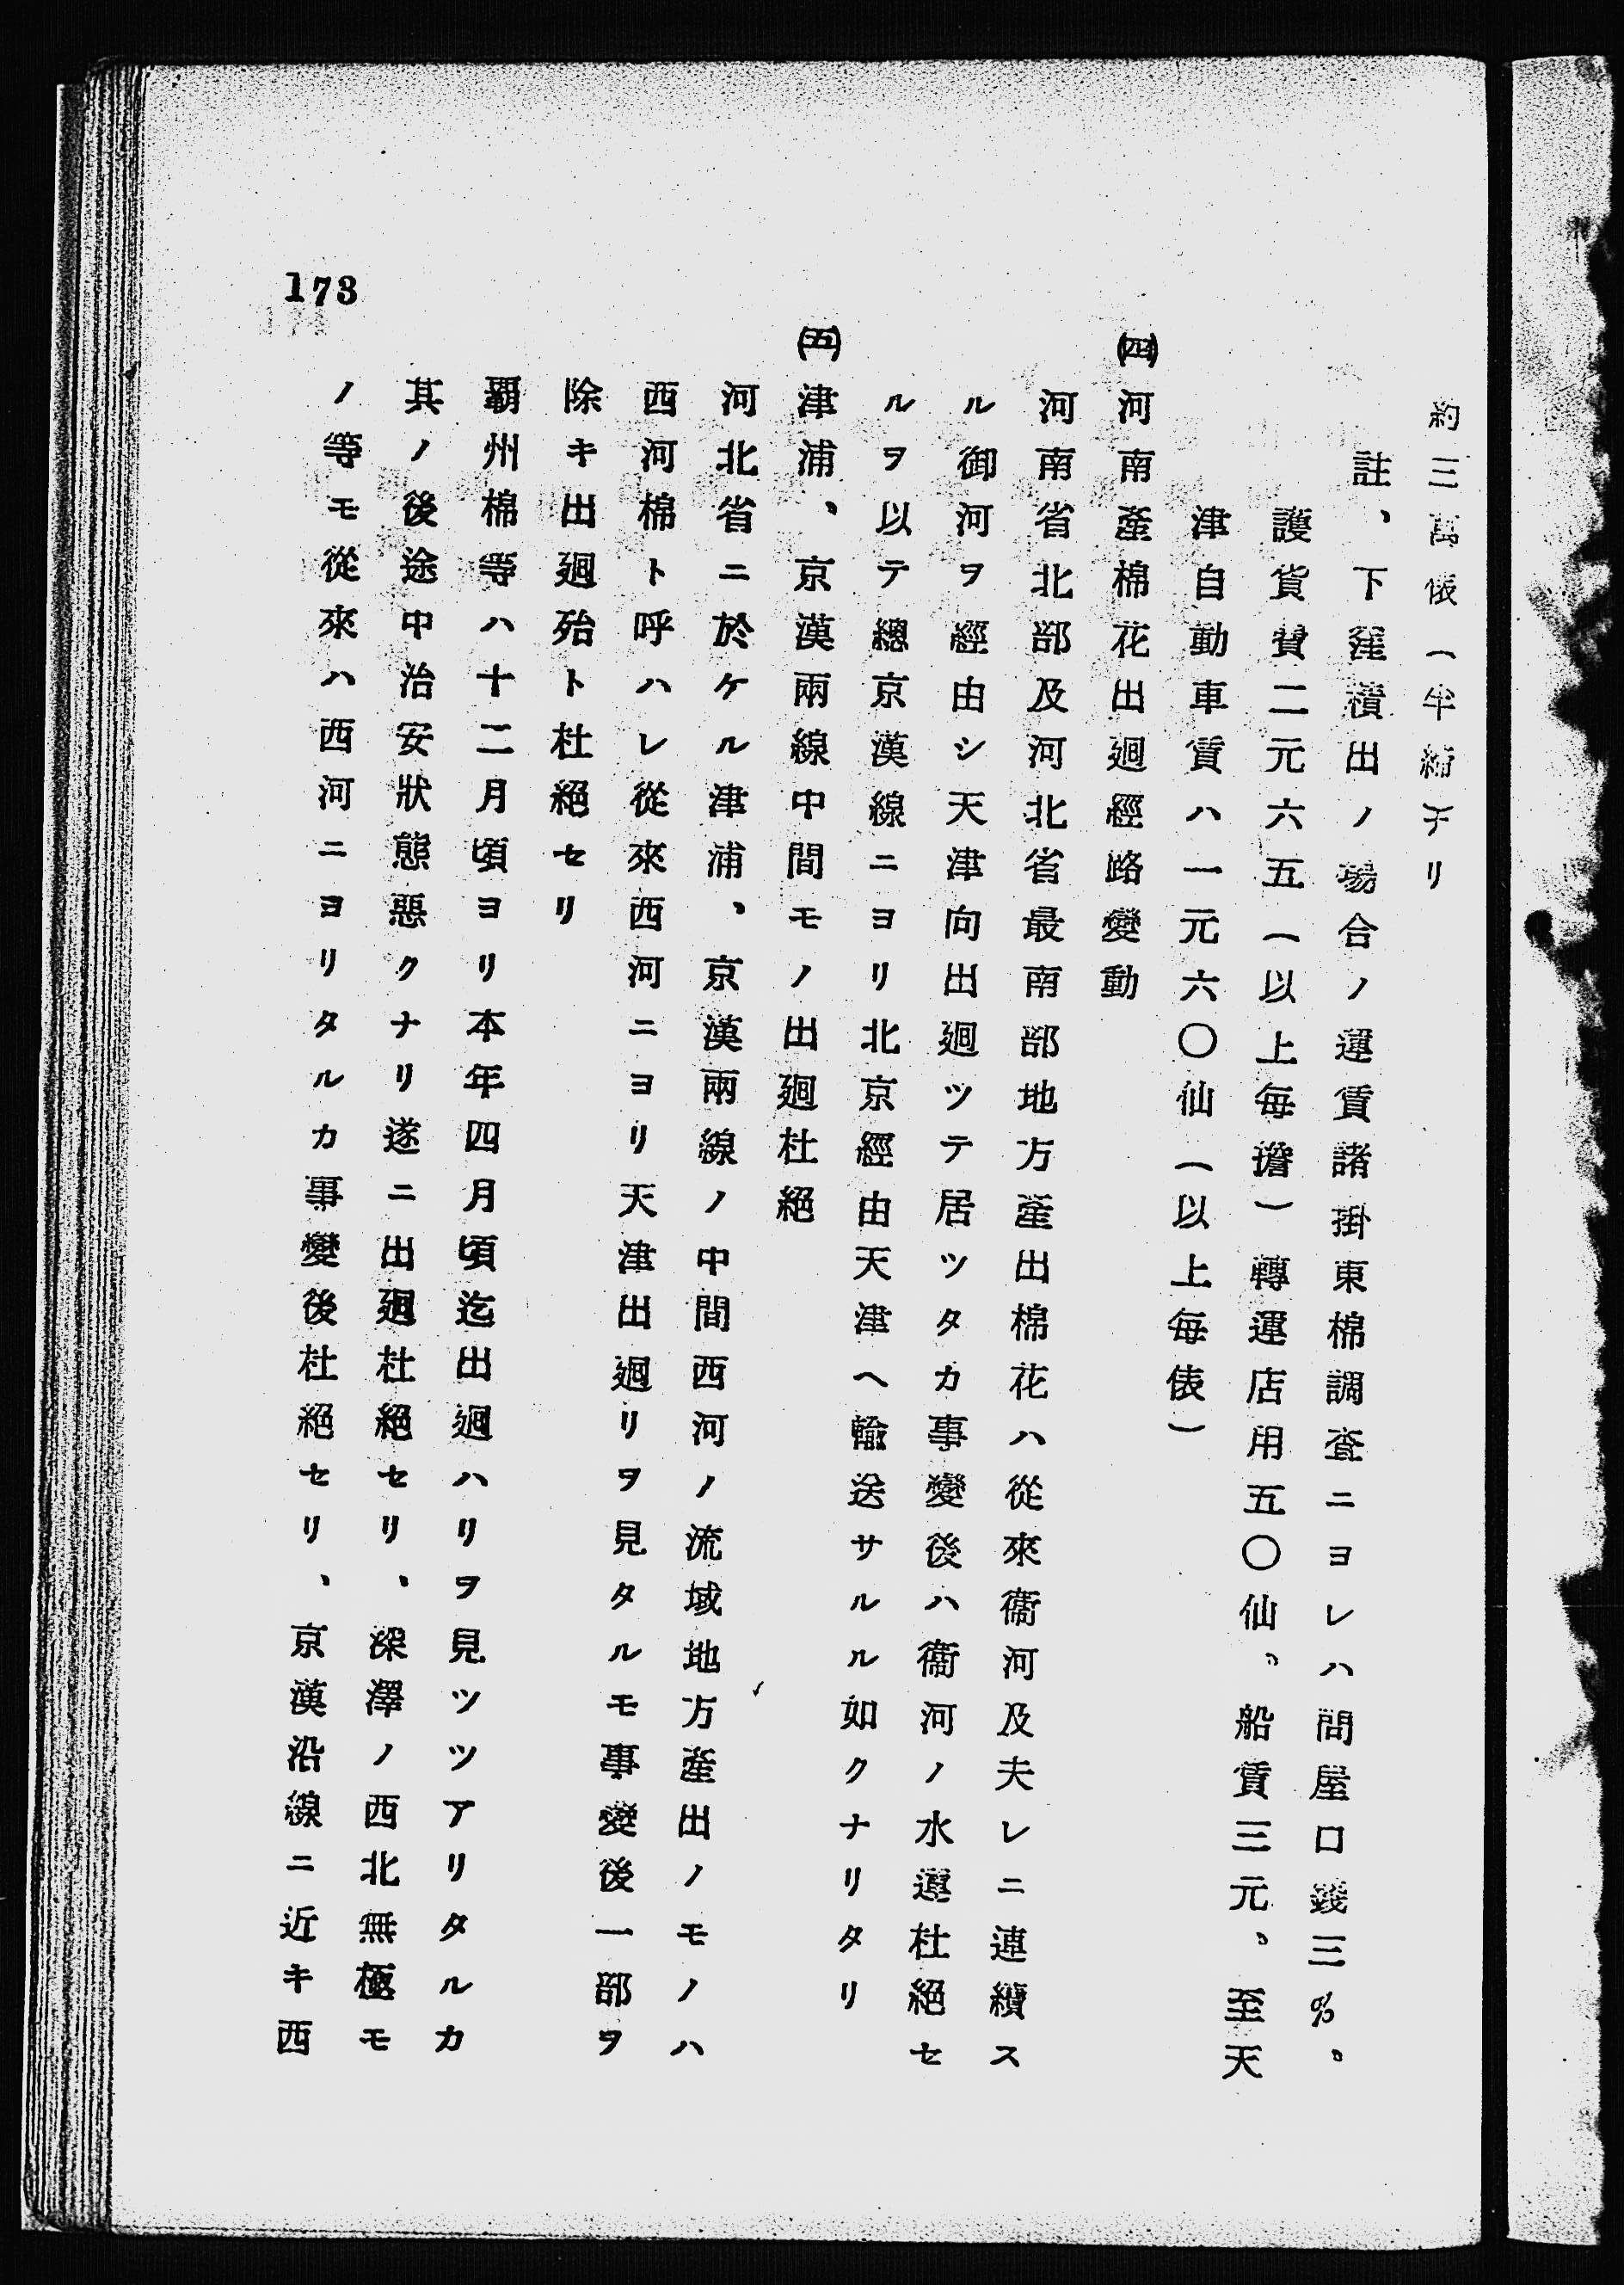 約三萬俵（半締チリ
註、下窪積出ノ場合ノ運賃諸掛東棉調査ニヨレハ問屋口錢三%、
護貨費二元六五（以上每擔）轉運店用五〇仙、船賃三元、至天
津自動車賃ハ一元六〇仙（以上每俵）
㈣河南產棉花出廻經路變動
河南省北部及河北省最南部地方產出棉花ハ從來衞河及夫レニ連續ス
ル御河ヲ經由シ天津向出廻ツテ居ツタカ事變後ハ衞河ノ水運杜絕セ
ルヲ以テ總京漢線ニヨリ北京經由天津ヘ輸送サルル如クナリタリ
㈤津浦、京漢兩線中間モノノ出廻杜絕
河北省ニ於ケル津浦、京漢兩線ノ中間西河ノ流域地方產出ノモノハ
西河棉ト呼ハレ從來西河ニヨリ天津出廻リヲ見タルモ事變後一部ヲ
除キ出廻殆ト杜絕セリ
覇州棉等ハ十二月頃ヨリ本年四月頃迄出廻ハリヲ見ツツアリタルカ
其ノ後途中治安狀態惡クナリ遂ニ出廻杜絕セリ、深澤ノ西北無極モ
ノ等モ從來ハ西河ニヨリタルカ事變後杜絕セリ、京漢沿線ニ近キ西
173